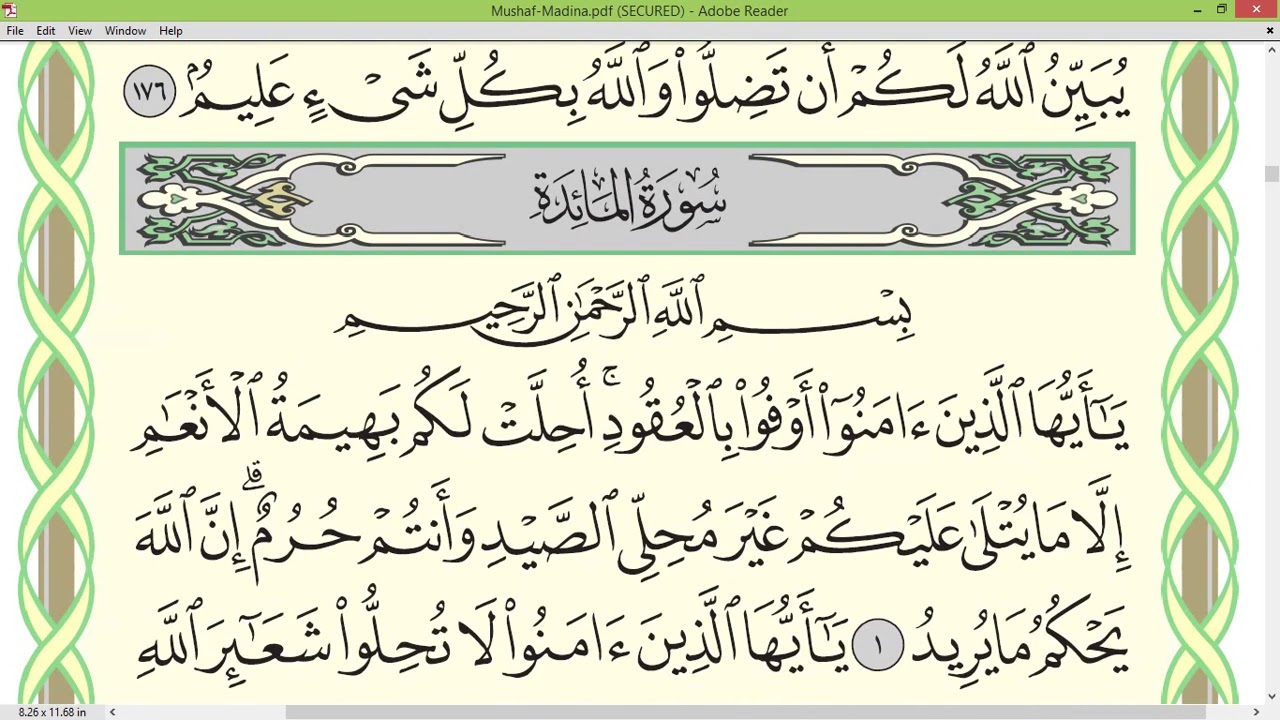 Mushaf-Madina.pdf (SECURED) - Adobe Reader
File Edit View Window Help
يُبَيِّنُ ٱللَّهُ لَكُمْ أَن تَضِلُّوا۟ وَٱللَّهُ بِكُلِّ شَىْءٍ عَلِيمٌۢ ١٧٦
سُورَةُ المَائِدَةِ
بِسْمِ ٱللَّهِ ٱلرَّحْمَٰنِ ٱلرَّحِيمِ
يَٰٓأَيُّهَا ٱلَّذِينَ ءَامَنُوٓا۟ أَوْفُوا۟ بِٱلْعُقُودِ ۚ أُحِلَّتْ لَكُم بَهِيمَةُ ٱلْأَنْعَٰمِ
إِلَّا مَا يُتْلَىٰ عَلَيْكُمْ غَيْرَ مُحِلِّى ٱلصَّيْدِ وَأَنتُمْ حُرُمٌ ۗ إِنَّ ٱللَّهَ
يَحْكُمُ مَا يُرِيدُ ١ يَٰٓأَيُّهَا ٱلَّذِينَ ءَامَنُوا۟ لَا تُحِلُّوا۟ شَعَٰٓئِرَ ٱللَّهِ
8.26 x 11.68 in